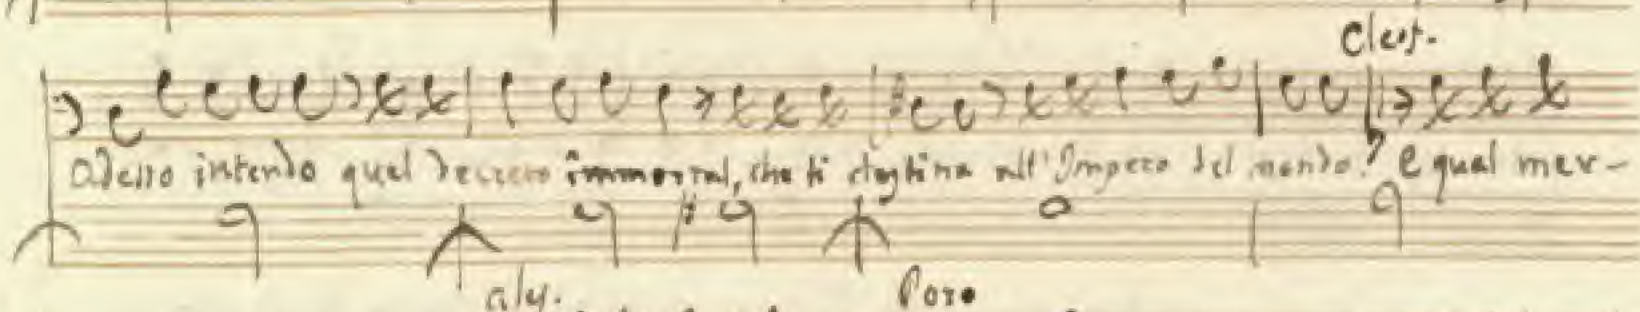 Cleof.
adesso intendo qual decreto immortal, che ti destina all'Impero del mondo? E qual mer-
Poro